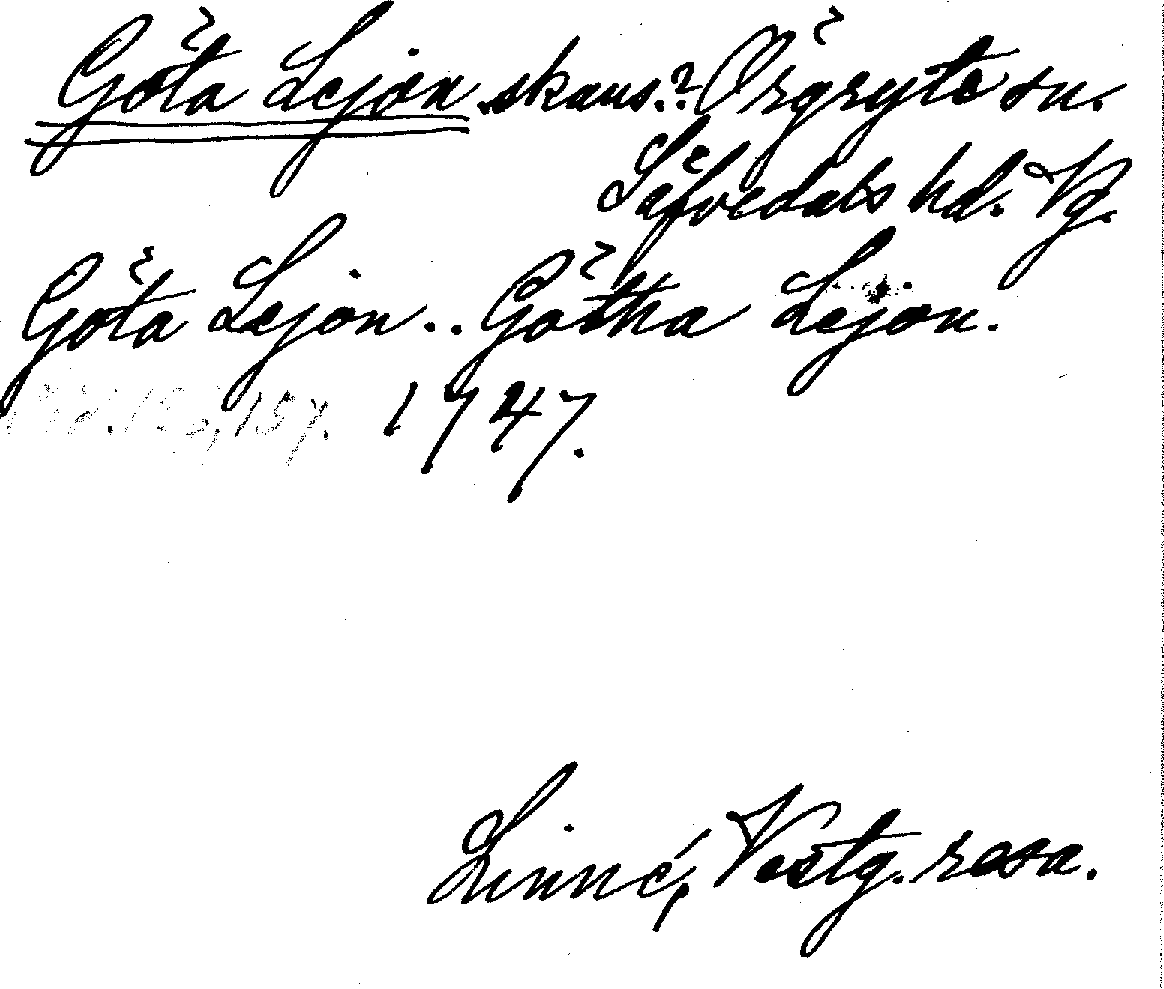 Göta Lejon, skans.? Örgryte sn.
Säfvedals hd. Vg.
Göta Lejon .. Götha Lejon.
157. 1747.
Linné, Vestg. resa.